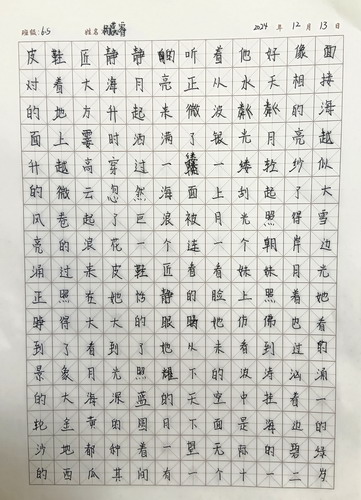 班级: 6.5 姓名: 2024 年 12 月 13 日
皮鞋匠静静的听着他好像面
对着大海月亮正从水天相接
的地方升起来微波粼粼的海
面上霎时洒满了银光月亮越
升越高穿过一缕一缕轻纱似
的微云忽然海面上刮起了大
风卷起了巨浪被月光照得雪
亮的浪花一个连一个朝岸边
涌过来皮鞋匠看看妹妹月光
正照在她恬静的脸上照着她
睁得大大的眼睛她仿佛也看
到了看到了她从未看到过的
景象月光照耀下的波涛汹涌
的大海深蓝的天空中挂着一
轮金黄的圆月下面是海边的
沙地都种着一望无际的碧绿
的西瓜其间有一个十一二岁